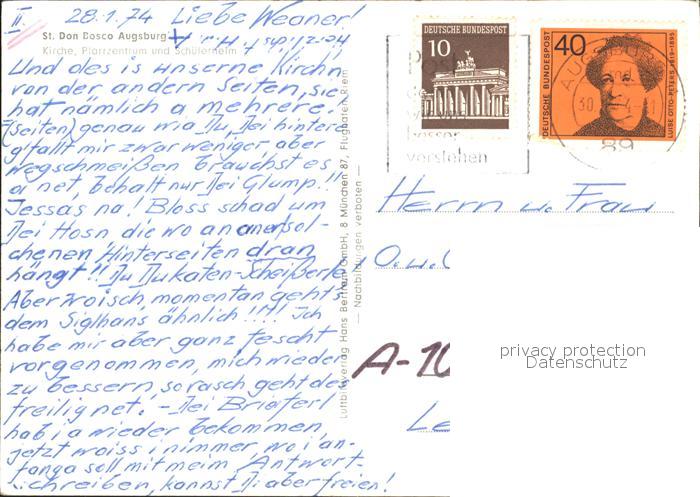 II. 28.1.74 Liebe Weaner!
St. Don Bosco Augsburg
Kirche, Pfarrzentrum und Schülerheim
Herzlichst
Und des is unserne Kirchn
von der andern Seiten, sie
hat nämlich a mehrere.
(Seiten) genau wia Du, Dei hintere
g'fallt mir zwar weniger aber
wegschmeißen brauchst es
a net, behalt nur Dei Glump!!
Jessas na! Bloss schad um
Dei Hosn die wo an anersol-
chenen Hinterseiten dran
hängt!! Du Dukaten-Scheißerle
Aber woisch momentan geht's
dem Siglhans ähnlich!!!! Ich
habe mir aber ganz fescht
vorgenommen, mich wieder
zu bessern, so rasch geht des
freilig net. - Dei Brieferl
hab i a wieder bekommen,
jetzt waiss i nimmer, wo i an-
fanga soll mit meim Antwort-
schreiben, kannst Di aber freien!
Luftbildverlag Hans Bertram GmbH, 8 München 87, Flughafen Riem
— Nachbildungen verboten —
DEUTSCHE BUNDESPOST
10
DEUTSCHE BUNDESPOST
40
LUISE OTTO-PETERS 1819-1895
AUGSBURG
30
89
besser
verstehen
Herrn u. Frau
O.u.
A-10
Le
privacy protection
Datenschutz